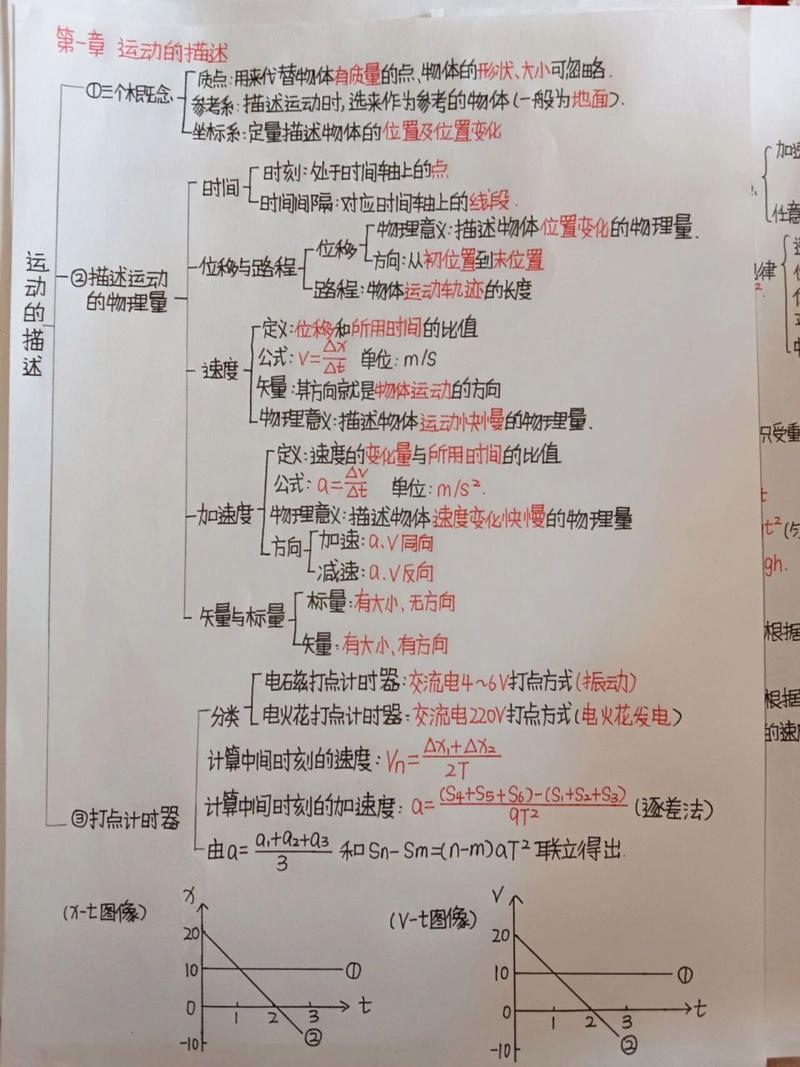 第一章 运动的描述
运动的描述
①三个概念
质点:用来代替物体有质量的点、物体的形状、大小可忽略.
参考系:描述运动时,选来作为参考的物体(一般为地面).
坐标系:定量描述物体的位置及位置变化
②描述运动的物理量
时间
时刻:处于时间轴上的点
时间间隔:对应时间轴上的线段.
位移与路程
位移
物理意义:描述物体位置变化的物理量.
方向:从初位置到末位置
路程:物体运动轨迹的长度
速度
定义:位移和所用时间的比值
公式:v=Δx/Δt 单位:m/s
矢量:其方向就是物体运动的方向
物理意义:描述物体运动快慢的物理量.
加速度
定义:速度的变化量与所用时间的比值
公式:a=Δv/Δt 单位:m/s².
物理意义:描述物体速度变化快慢的物理量
方向
加速:a、v同向
减速:a、v反向
矢量与标量
标量:有大小、无方向
矢量:有大小、有方向
③打点计时器
分类
电磁打点计时器:交流电4~6V打点方式(振动)
电火花打点计时器:交流电220V打点方式(电火花发电)
计算中间时刻的速度:Vn=(Δx₁+Δx₂)/2T
计算中间时刻的加速度:a=((S₄+S₅+S₆)-(S₁+S₂+S₃))/9T² (逐差法)
由a=(a₁+a₂+a₃)/3 和Sn-Sm=(n-m)aT²联立得出.
(x-t图像)
x
20
10
0
-10
1 2 3
t
①
②
(V-t图像)
V
20
10
0
-10
1 2 3
t
①
②
加速
任意
律
只受重
t
t²(匀
gh.
根据
根据
的速度